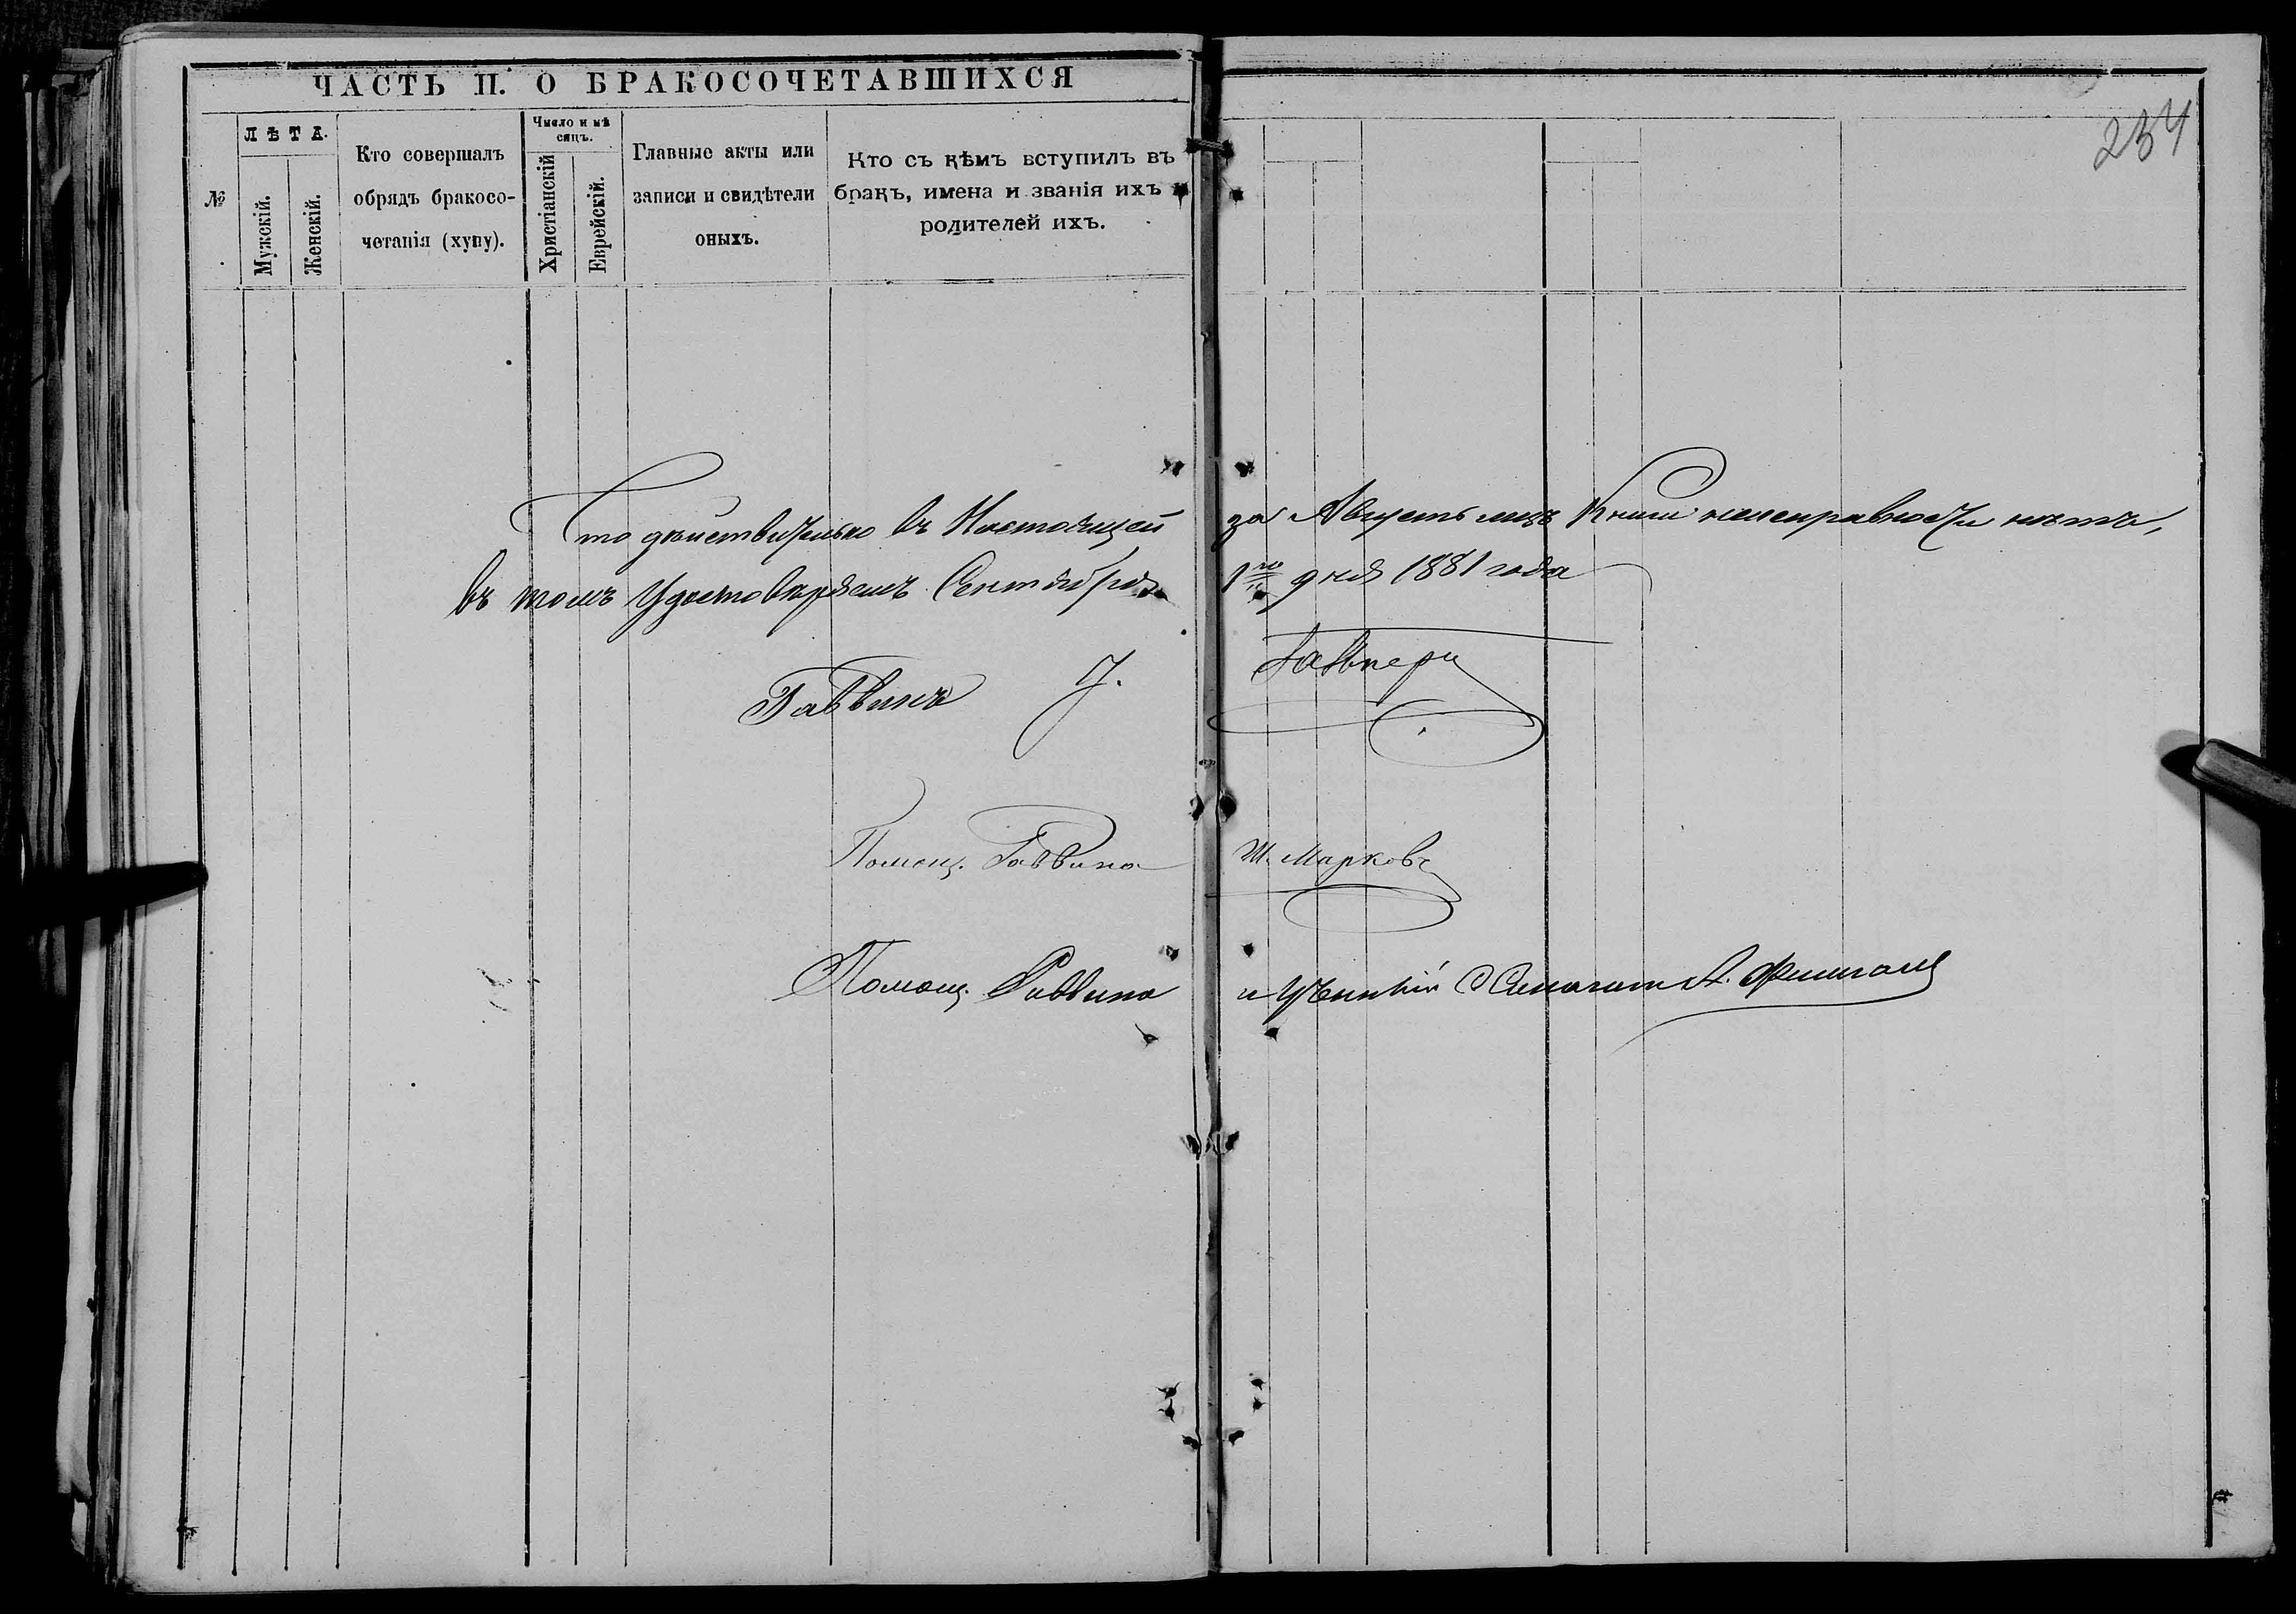 ЧАСТЬ II. О БРАКОСОЧЕТАВШИХСЯ
234
№
ЛѢТА.
Мужскій.
Женскій.
Кто совершалъ
обрядъ бракосо-
четанія (хупу).
Число и мѣ
сяцъ.
Христіанскій
Еврейскій.
Главные акты или
записи и свидѣтели
оныхъ.
Кто съ кѣмъ вступилъ въ
бракъ, имена и званія ихъ и
родителей ихъ.
Что действительно въ Настоящей за Августъ мцъ Книги неисправности нѣтъ,
въ томъ Удостовѣряемъ Сентября 1го дня 1881 года
Раввинъ
Помощ. Раввина Ш. Марковъ
Помощ. Раввина и